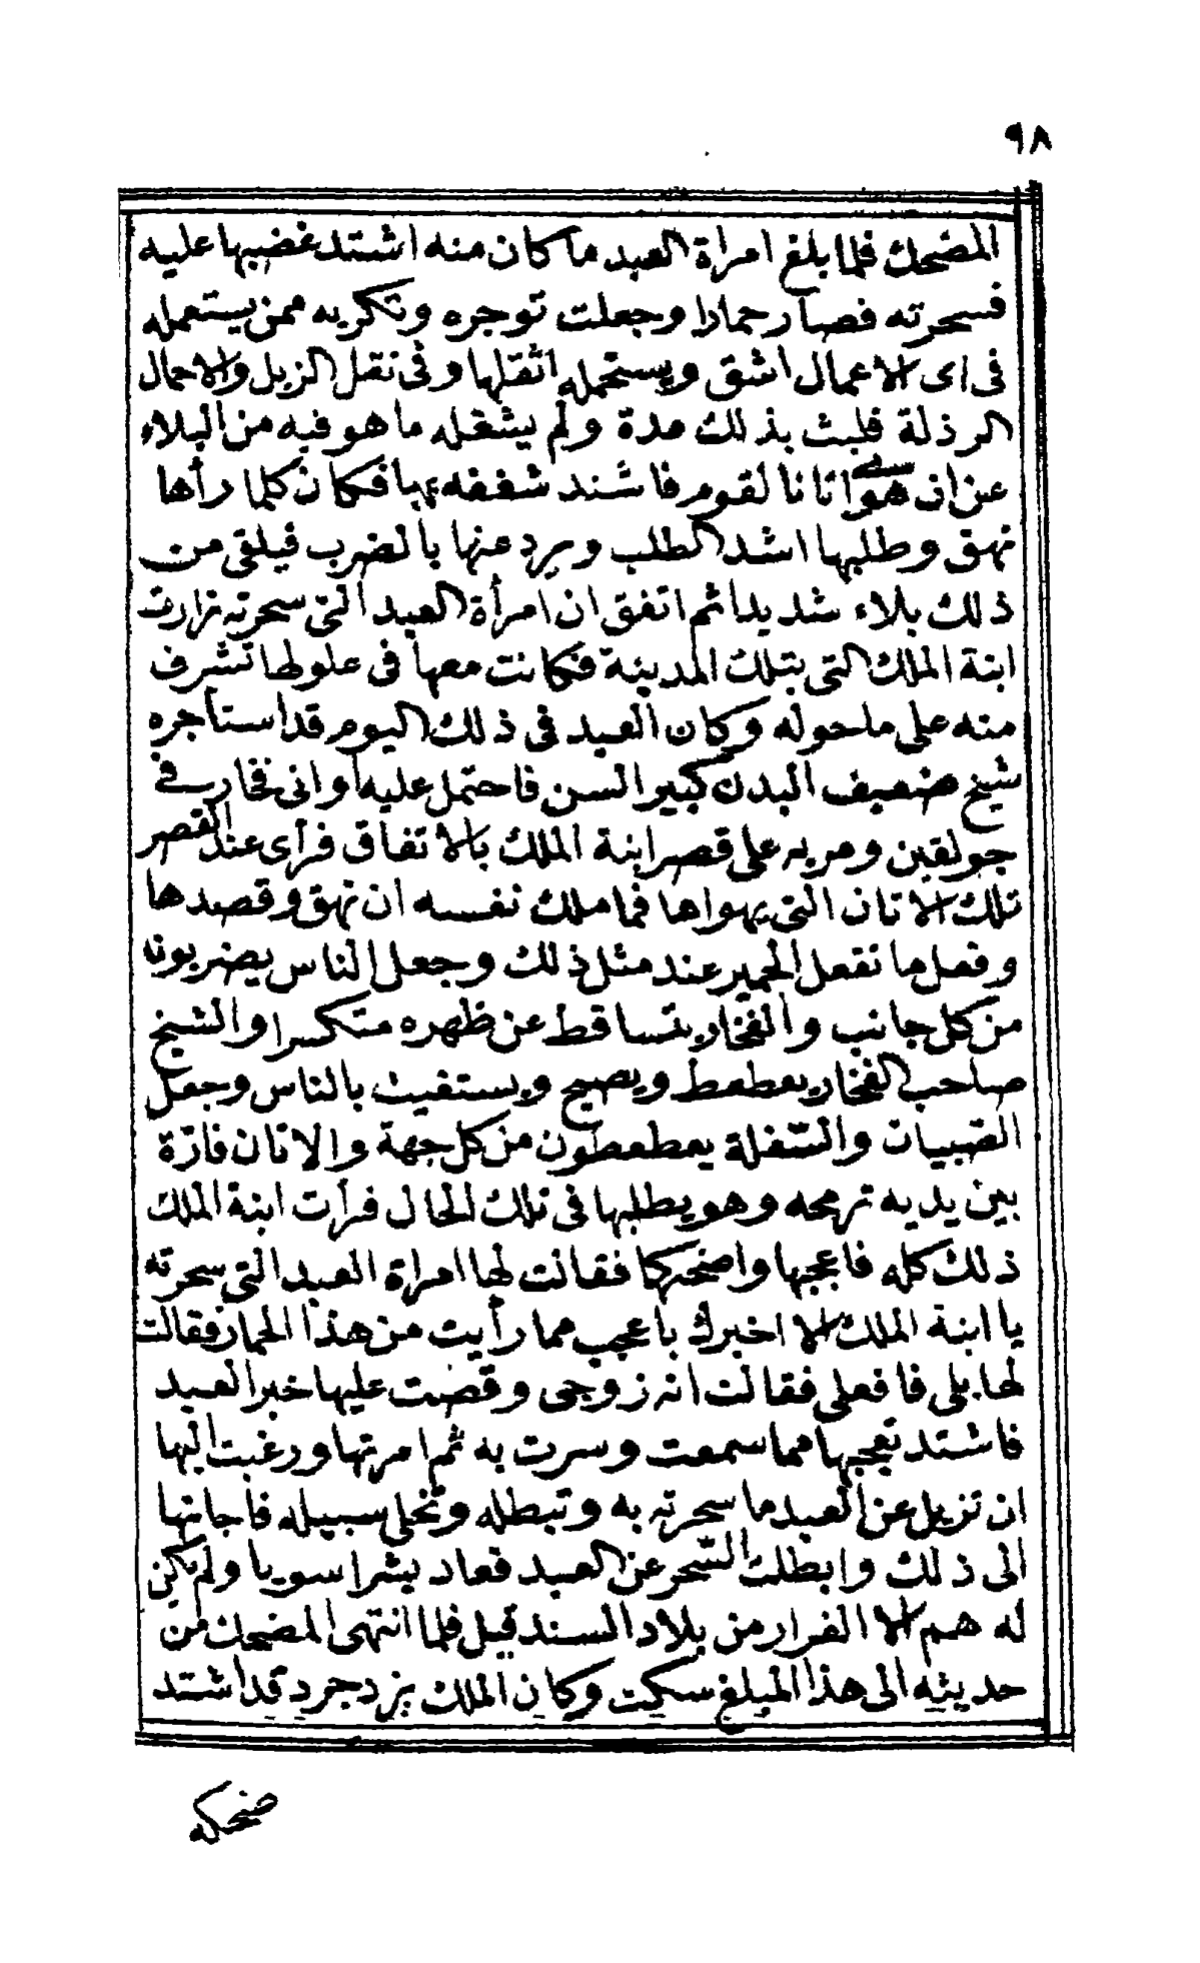 ٩٨
المضحك فلما بلغ امراة العبد ما كان منه اشتد غضبها عليه
فسحرته فصار حمارا وجعلت توجره وتكريه ممن يستعمله
فى اى الاعمال اشق ويستحمله اثقلها وفى نقل الزبل والاحمال
الرذلة فلبث بذلك مدة ولم يشغله ما هو فيه من البلاء
عن ان هوى اتانا لقوم فاشتد شغفه بها فكان كلما رأها
نهق وطلبها اشد الطلب ويرد عنها بالضرب فيلقى من
ذلك بلاء شديدا ثم اتفق ان امرأة العبد التى سحرته زارت
ابنة الملك التى بتلك المدينة فكانت معها فى علو لها تشرف
منه على ما حوله وكان العبد فى ذلك اليوم قد استاجره
شيخ ضعيف البدن كبير السن فاحتمل عليه اوانى فخار فى
جولقين ومر به على قصر ابنة الملك بالاتفاق فرأى عند القصر
تلك الاتان التى يهواها فما ملك نفسه ان نهق وقصدها
وفعل ما تفعل الحمير عند مثل ذلك وجعل الناس يضربونه
من كل جانب والفخار يتساقط عن ظهره متكسرا والشيخ
صاحب الفخار يعطعط ويصيح ويستغيث بالناس وجعل
الصبيان والسفلة يعطعطون من كل جهة والاتان فارة
بين يديه ترمحه وهو يطلبها فى تلك الحال فرأت ابنة الملك
ذلك كله فاعجبها واضحكها فقالت لها امراة العبد التى سحرته
يا ابنة الملك الا اخبرك باعجب مما رأيت من هذا الحمار فقالت
لها بلى فافعلى فقالت انه زوجى وقصت عليها خبر العبد
فاشتد تعجبها مما سمعت وسرت به ثم امرتها ورغبت اليها
ان تزيل عن العبد ما سحرته به وتبطله وتخلى سبيله فاجابتها
الى ذلك وابطلت السحر عن العبد فعاد بشرا سويا ولم يكن
له هم الا الفرار من بلاد السند قيل فلما انتهى المضحك من
حديثه الى هذا المبلغ سكت وكان الملك يزدجرد قد اشتد
ضحكه